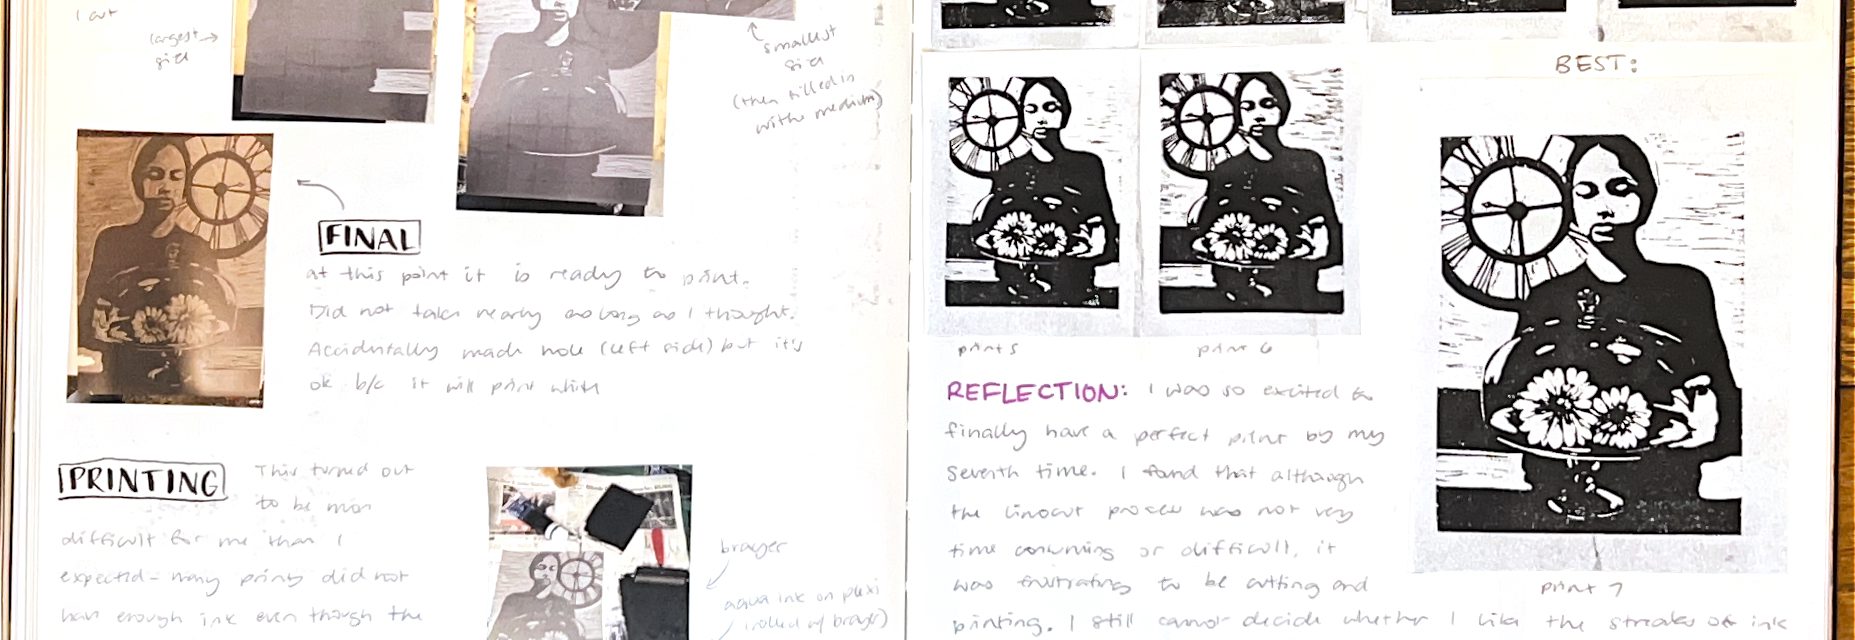 1 cut
largest
gild
smallest
(then filled in
with medium)
FINAL
at this point it is ready to print.
Did not take nearly as long as I thought.
Accidentally made hole (left side) but it's
ok b/c it will print white
PRINTING
This turned out
to be mor
difficult for me than I
expected - many prints did not
have enough ink even though the
brayer
aqua ink on plexi
(rolled w/ brayer)
BEST:
print 5
print 6
print 7
REFLECTION: I was so excited to
finally have a perfect print by my
seventh time. I found that although
the linocut process was not very
time consuming or difficult, it
was frustrating to be cutting and
printing. I still cannot decide whether I like the streaks of ink